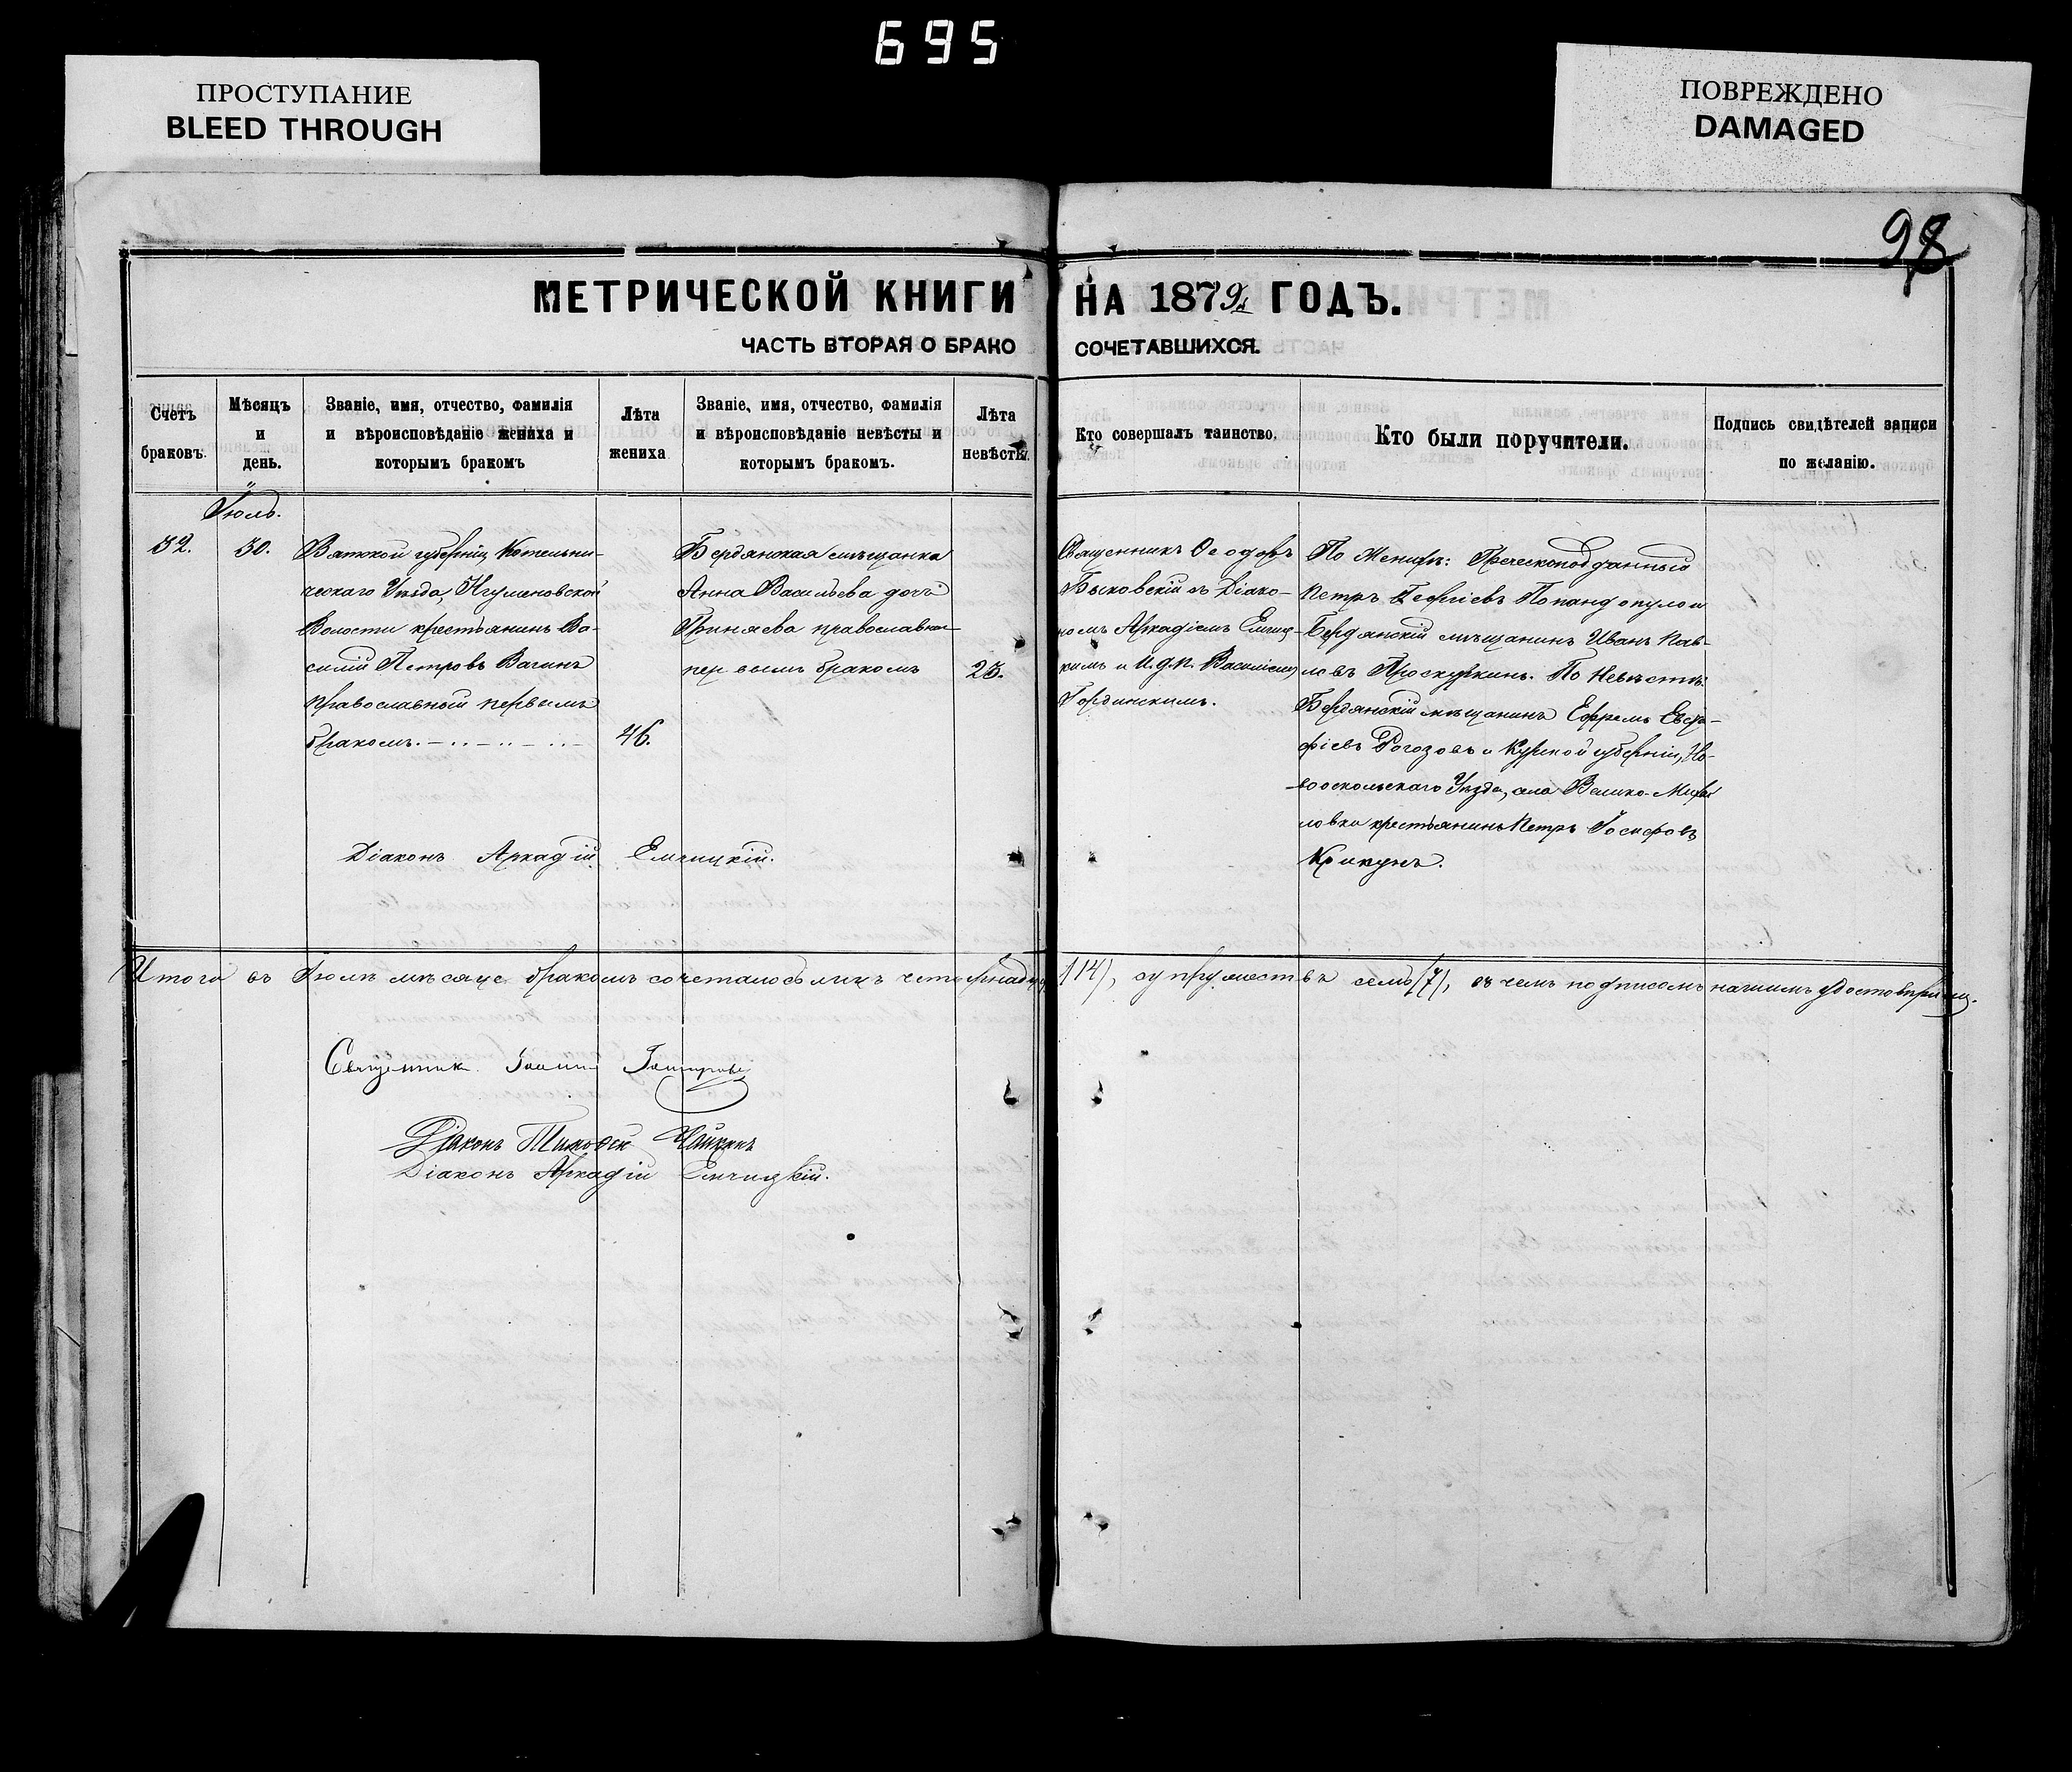 695
ПРОСТУПАНИЕ
BLEED THROUGH
ПОВРЕЖДЕНО
DAMAGED
98
МЕТРИЧЕСКОЙ КНИГИ НА 1879 ГОДЪ.
ЧАСТЬ ВТОРАЯ О БРАКОСОЧЕТАВШИХСЯ.
Счетъ
браковъ.
Мѣсяцъ
и
день.
Званіе, имя, отчество, фамилія
и вѣроисповѣданіе жениха и
которымъ бракомъ
Лѣта
жениха
Званіе, имя, отчество, фамилія
и вѣроисповѣданіе невѣсты и
которымъ бракомъ.
Лѣта
невѣсты.
Кто совершалъ таинство.
Кто были поручители.
Подпись свидѣтелей записи
по желанію.
Іюль.
32.
30.
Вятской губерніи, Котельни-
ческаго Уѣзда, Игуменовской
Волости крестьянинъ Ва-
силій Петровъ Вагинъ
православный первымъ
бракомъ.
46.
Бердянская мѣщанка
Анна Васильева дочь
Гриняева православная
первымъ бракомъ
25.
Священникъ Ѳеодоръ
Быковскій съ Діако-
номъ Аркадіемъ Емчиц-
кимъ и И.д.п. Василіемъ
Гординскимъ.
По Женихѣ: Греческоподданный
Петръ Георгіевъ Попандопуло и
Бердянскій мѣщанинъ Иванъ Пав-
ловъ Проскуркинъ. По Невѣстѣ:
Бердянскій мѣщанинъ Ефремъ Евста-
фіевъ Рогозовъ и Курской губерніи, Но-
вооскольскаго Уѣзда, села Велико-Михай
ловки крестьянинъ Петръ Іосифовъ
Крикунъ.
Діаконъ Аркадій Емчицкій.
Итого въ Іюлѣ мѣсяце бракомъ сочеталось лицъ четырнадцать (14), супружествъ семь (7), въ чемъ подписомъ нашимъ удостовѣряемъ.
Священник Іоанн
Діаконъ Тимоѳей Чайкинъ
Діаконъ Аркадій Емчицкій.